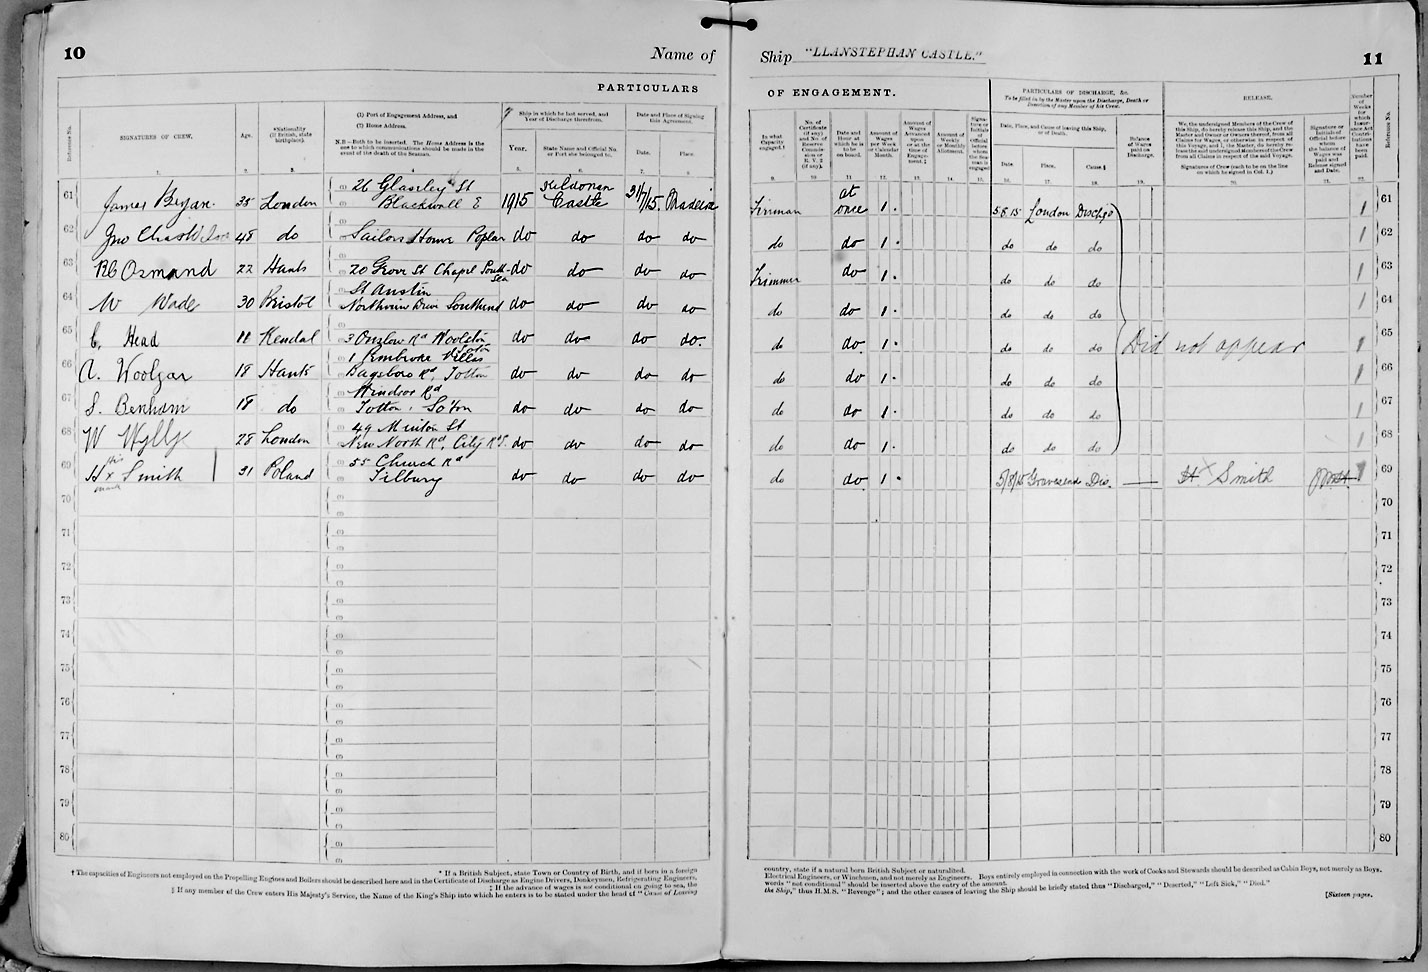 10
Name of
Ship "LLANSTEPHAN CASTLE."
11
PARTICULARS
OF ENGAGEMENT.
PARTICULARS OF DISCHARGE, &c.
To be filled in by the Master upon the Discharge, Death or Desertion of any Member of his Crew.
RELEASE.
Reference No.
SIGNATURES OF CREW.
Age.
*Nationality (If British, state birthplace).
(1) Port of Engagement Address, and
(2) Home Address.
N.B.—Both to be inserted. The Home Address is the one to which communications should be made in the event of the death of the Seaman.
Ship in which he last served, and Year of Discharge therefrom.
Year.
State Name and Official No. or Port she belonged to.
Date and Place of Signing this Agreement.
Date.
Place.
In what Capacity engaged.†
No. of Certificate (if any) and No. of Reserve Commission or R.V. 2 (if any).
Date and Hour at which he is to be on board.
Amount of Wages per Week or Calendar Month.
Amount of Wages Advanced upon or at the time of Engagement.‡
Amount of Weekly or Monthly Allotment.
Date, Place, and Cause of leaving this Ship, or of Death.
Date.
Place.
Cause.§
Balance of Wages paid on Discharge.
We, the undersigned Members of the Crew of this Ship, do hereby release this Ship, and the Master and Owner or Owners thereof, from all Claims for Wages, or otherwise, in respect of this Voyage, and I, the Master, do hereby release the said undersigned Members of the Crew from all Claims in respect of the said Voyage.
Signatures of Crew (each to be on the line on which he signed in Col. 1.)
Signature or Initials of Official before whom the balance of Wages was paid and Release signed and Date.
Number of Weeks for which Insurance Act Contributions have been paid.
Reference No.
61 James Bryan 38 London 26 Glassley St Blackwall E 1915 Kildonan Castle 31/7/15 Madeira Fireman at once 1. 5 8 15 London Dischge 1 61
62 Jno Chas Wilson 48 do Sailors Home Poplar do do do do do do 1. do do do 1 62
63 Osmond 22 Hants 20 Grove St Chapel Southsea do do do do Trimmer do 1. do do do 1 63
64 W Wade 30 Bristol St Austin Northview Drive Southend do do do do do do 1. do do do 1 64
65 C. Head Kendal 3 Onslow Rd Woolston do do do do. do do 1. do do do Did not appear 1 65
66 A. Woolgar 18 Hants 1 Pembroke Villas Bagsboro Rd, Totton do do do do do do 1. do do do 1 66
67 S. Benham 18 do Windsor Rd Totton, So'ton do do do do do do 1. do do do 1 67
68 W Wylly 28 London 49 Mintos St New North Rd, City Rd do do do do do do 1. do do do 1 68
69 H his x mark Smith 31 Poland 55 Church Rd Tilbury do do do do do do 1. 5/8/15 Gravesend Dis. — H x Smith 1 69
70 70
71 71
72 72
73 73
74 74
75 75
76 76
77 77
78 78
79 79
80 80
† The capacities of Engineers not employed on the Propelling Engines and Boilers should be described here and in the Certificate of Discharge as Engine Drivers, Donkeymen, Refrigerating Engineers,
* If a British Subject, state Town or Country of Birth, and if born in a foreign
‡ If the advance of wages is not conditional on going to sea, the
§ If any member of the Crew enters His Majesty's Service, the Name of the King's Ship into which he enters is to be stated under the head of "Cause of Leaving
country, state if a natural born British Subject or naturalised.
Electrical Engineers, or Winchmen, and not merely as Engineers. Boys entirely employed in connection with the work of Cooks and Stewards should be described as Cabin Boys, not merely as Boys.
words "not conditional" should be inserted above the entry of the amount.
the Ship," thus H.M.S. "Revenge"; and the other causes of leaving the Ship should be briefly stated thus "Discharged," "Deserted," "Left Sick," "Died."
[Sixteen pages.